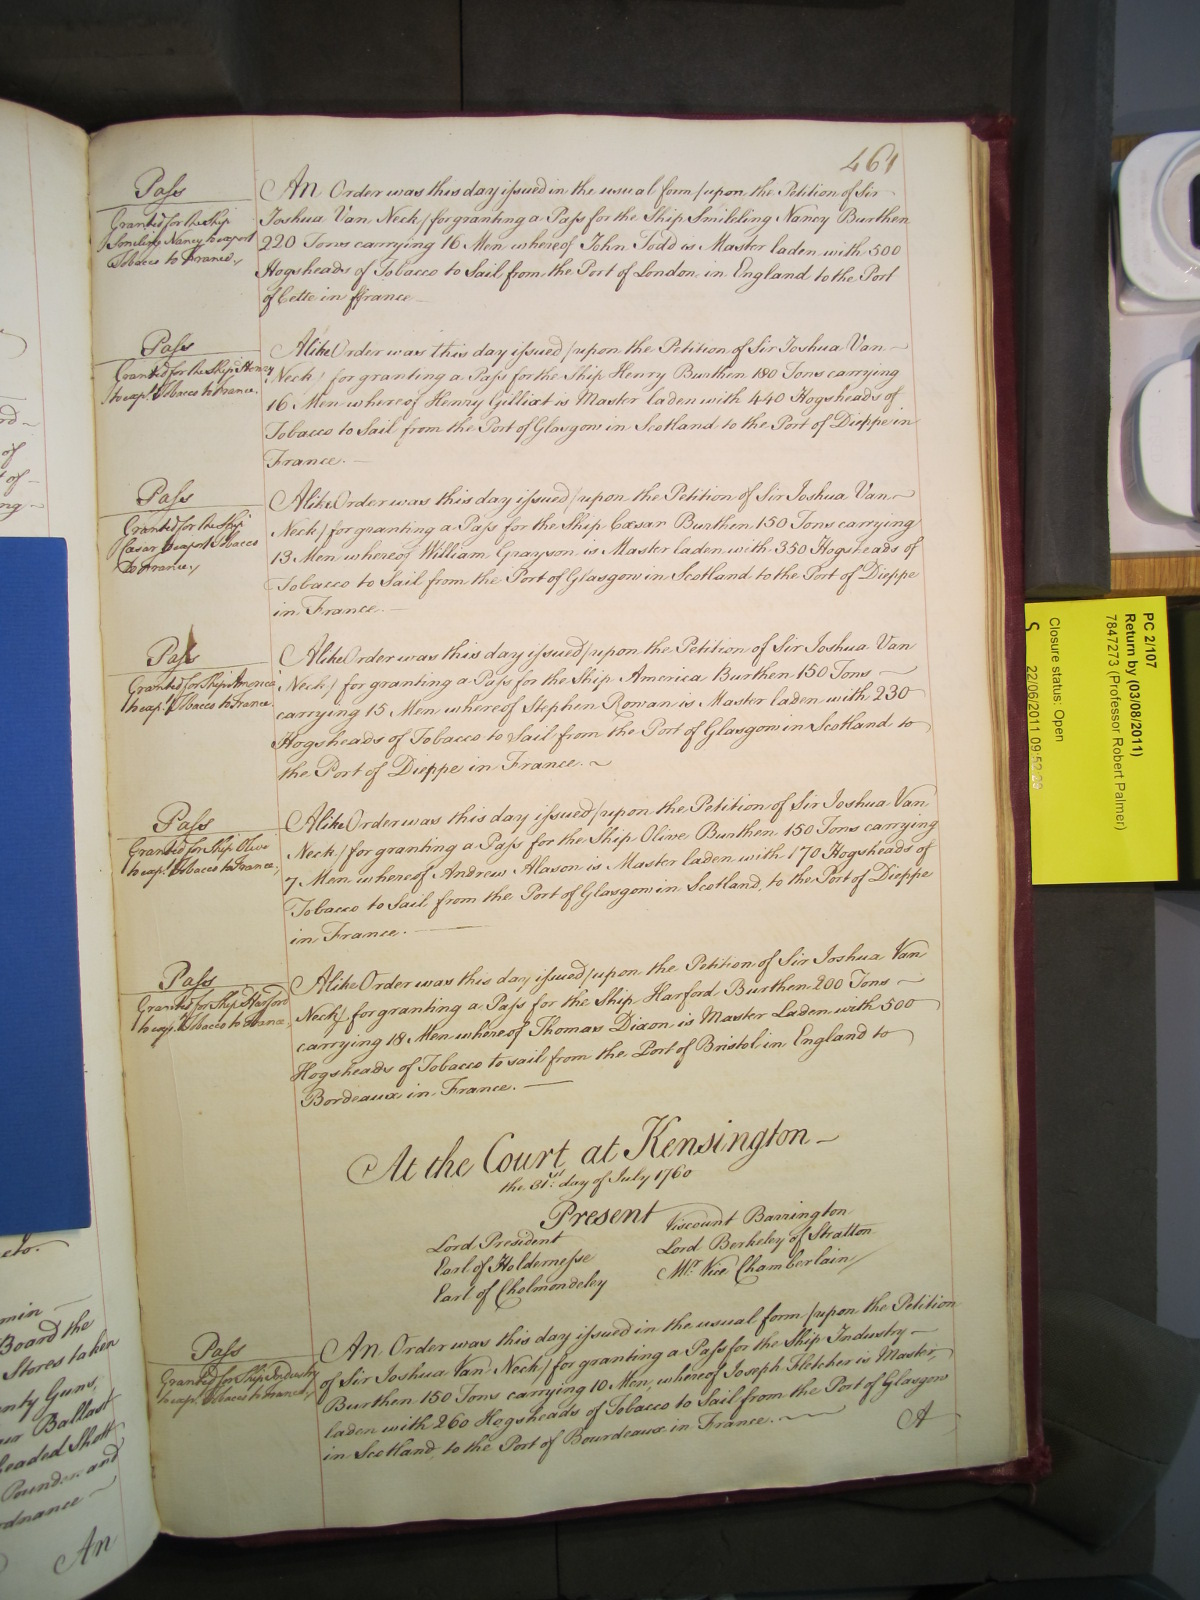 461
Pass
Granted for the Ship
Smiling Nancy to export
Tobacco to France.
An Order was this day issued in the usual form /upon the Petition of Sir
Joshua Van Neck/ for granting a Pass for the Ship Smileling Nancy Burthen
220 Tons carrying 16 Men whereof John Todd is Master laden with 500
Hogsheads of Tobacco to Sail from the Port of London in England to the Port
of Cette in ffrance
Pass
Granted for the Ship Henry
to exp.t Tobacco to France.
A like Order was this day issued /upon the Petition of Sir Joshua Van
Neck/ for granting a Pass for the Ship Henry Burthen 180 Tons carrying
16 Men whereof Henry Gilliat is Master laden with 440 Hogsheads of
Tobacco to Sail from the Port of Glasgow in Scotland to the Port of Dieppe in
France.
Pass
Granted for the Ship
Cæsar to export Tobacco
to France.
A like Order was this day issued /upon the Petition of Sir Joshua Van
Neck/ for granting a Pass for the Ship Cæsar Burthen 150 Tons carrying
13 Men whereof William Grayson is Master laden with 350 Hogsheads of
Tobacco to Sail from the Port of Glasgow in Scotland to the Port of Dieppe
in France.
Pass
Granted for Ship America
to exp.t Tobacco to France.
A like Order was this day issued /upon the Petition of Sir Joshua Van
Neck/ for granting a Pass for the Ship America Burthen 150 Tons
carrying 15 Men whereof Stephen Rowan is Master laden with 230
Hogsheads of Tobacco to Sail from the Port of Glasgow in Scotland to
the Port of Dieppe in France.
Pass
Granted for Ship Olive
to exp.t Tobacco to France.
A like Order was this day issued /upon the Petition of Sir Joshua Van
Neck/ for granting a Pass for the Ship Olive Burthen 150 Tons carrying
7 Men whereof Andrew Alason is Master laden with 170 Hogsheads of
Tobacco to Sail from the Port of Glasgow in Scotland, to the Port of Dieppe
in France.
Pass
Granted for Ship Harford
to exp.t Tobacco to France.
A like Order was this day issued /upon the Petition of Sir Joshua Van
Neck/ for granting a Pass for the Ship Harford, Burthen 200 Tons
carrying 18 Men whereof Thomas Dixon is Master Laden with 500
Hogsheads of Tobacco to sail from the Port of Bristol in England to
Bordeaux in France.
At the Court at Kensington
the 31st day of July 1760
Present
Lord President
Earl of Holdernesse
Earl of Cholmondeley
Viscount Barrington
Lord Berkeley of Stratton
Mr. Vice Chamberlain
Pass
Granted for Ship Industry
to exp.t Tobacco to France.
An Order was this day issued in the usual form /upon the Petition
of Sir Joshua Van Neck/ for granting a Pass for the Ship Industry
Burthen 150 Tons carrying 10 Men, whereof Joseph Fletcher is Master,
laden with 260 Hogsheads of Tobacco to Sail from the Port of Glasgow
in Scotland, to the Port of Bourdeaux in France.
A
min
Board the
Stores taken
Guns,
Ballast
headed Shott
and
An
PC 2/107
Return by (03/08/2011)
7847273 (Professor Robert Palmer)
Closure status: Open
S
22/06/2011 09:52:00